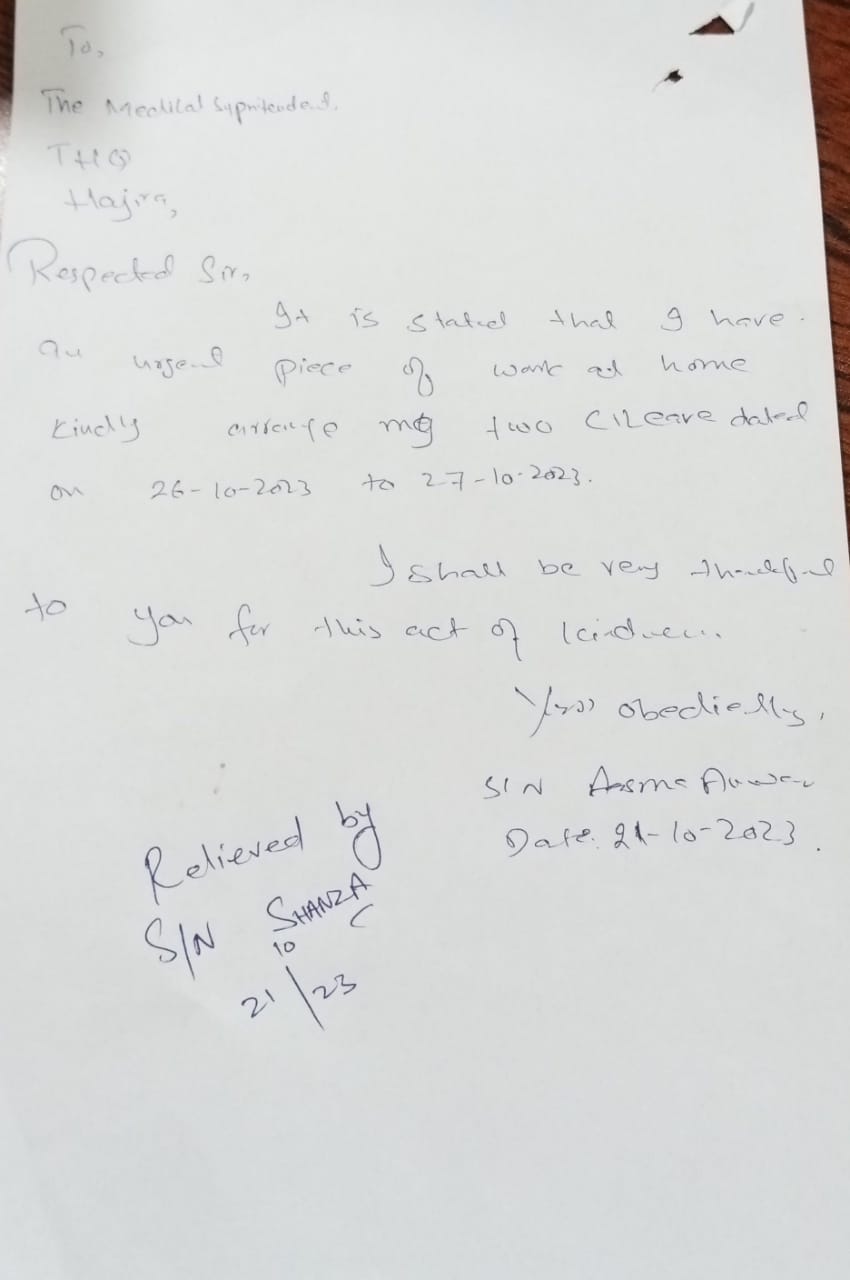 To,
The Medical Supritendent.
THQ
Hajira,
Respected Sir,
It is stated that I have
an urgent piece of work at home
kindly arrange me two C/Leave dated
on 26-10-2023 to 27-10-2023.
I shall be very thankful
to you for this act of kindness.
Yours obediently,
S/N Aasma Anwar
Date. 21-10-2023.
Relieved by
S/N SHANZA
10
21/23